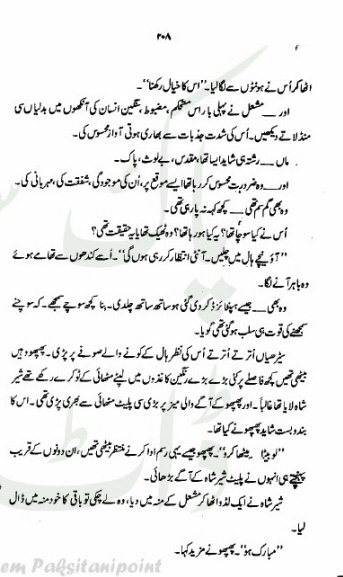 ۲۰۸
اٹھا کر اُس نے ہونٹوں سے لگا لیا۔ ”اس کا خیال رکھنا“۔
اور ــــ مشعل نے پہلی بار اس مستحکم، مضبوط، سنگین انسان کی آنکھوں میں بدلیاں سی
منڈلاتے دیکھیں۔ اُس کی شدت جذبات سے بھاری ہوتی آواز محسوس کی۔
ماں ــــ رشتہ ہی شاید ایسا تھا، مقدس، بے لوث، پاک۔
اور ــــ وہ ضرورت محسوس کر رہا تھا ایسے موقع پر، اُن کی موجودگی، شفقت کی، مہربانی کی۔
وہ بھی گم سم تھی ــــ کچھ کہہ نہ پا رہی تھی۔
اُس نے کیا سوچا تھا؟ یہ کیا ہو رہا تھا؟ وہ ٹھیک تھا یا یہ حقیقت تھی؟
”آؤ نیچے ہال میں چلیں۔ آنٹی انتظار کر رہی ہوں گی“۔ اُسے کندھوں سے تھامے ہوئے
وہ باہر آنے لگا۔
وہ بھی ــــ جیسے ہپناٹزڈ کر دی گئی ہو ساتھ ساتھ چلدی۔ بنا کچھ سوچے سمجھے۔ کہ سوچنے
سمجھنے کی قوت ہی سلب ہو گئی تھی گویا۔
سیڑھیاں اُترتے اُترتے اُس کی نظر ہال کے کونے والے صوفے پر پڑی۔ پھپھو وہیں
بیٹھی تھیں کچھ فاصلے پر کئی بڑے بڑے رنگین کاغذوں میں لپٹے مٹھائی کے ٹوکرے رکھے تھے شیر
شاہ لایا تھا غالباً۔ اور پھپھو کے آگے والی میز پر بڑی سی پلیٹ مٹھائی سے بھری پڑی تھی۔ اس کا
بندوبست شاید پھپھو نے کیا تھا۔
”لو بیٹا ــــ میٹھا کرو“۔ پھپھو جیسے یہی رسم ادا کرنے منتظر بیٹھی تھیں، ان دونوں کے قریب
پہنچتے ہی انہوں نے پلیٹ شیر شاہ کے آگے بڑھائی۔
شیر شاہ نے ایک لڈو اٹھا کر مشعل کے منہ میں دیا، وہ لے چکی تو باقی کا خود منہ میں ڈال
لیا۔
”مبارک ہو“۔ پھپھو نے مزید کہا۔
em Paksitanipoint